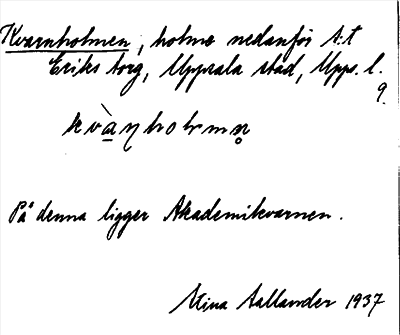 Kvarnholmen, holme nedanför S:t
Eriks torg, Uppsala stad, Upps. l.
9.
På denna ligger Akademikvarnen.
Stina Sallander 1937